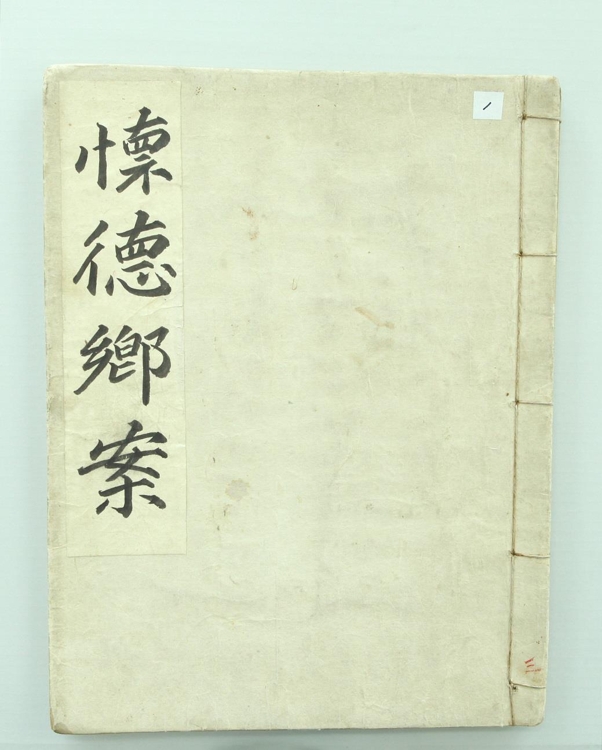 懷德鄕案
1
三